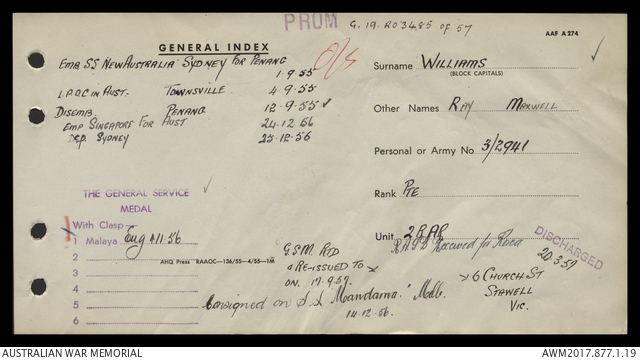 PROM G.19. R03485 of 57
AAF A 274
GENERAL INDEX
O/S
EMB SS NEW AUSTRALIA SYDNEY FOR PENANG
1.9.55
L.P.O.C IN AUST. TOWNSVILLE 4.9.55
DISEMB. PENANG 12.9.55
EMP SINGAPORE FOR AUST 24.12.56
Dep. SYDNEY 23.12.56
Surname WILLIAMS
(BLOCK CAPITALS)
Other Names RAY MAXWELL
Personal or Army No 3/2941
Rank PTE
Unit 2RAR
THE GENERAL SERVICE
MEDAL
With Clasp
1 Malaya
2
3
4
5
6
AHQ Press RAAOC—136/55—4/55—1M
G.S.M. RTD
& RE-ISSUED TO
ON. 17.9.57.
Consigned on S.S. Melb.
14.12.56.
Received
DISCHARGED
20.3.57
6 CHURCH ST
STAWELL
VIC.
AUSTRALIAN WAR MEMORIAL
AWM2017.877.1.19